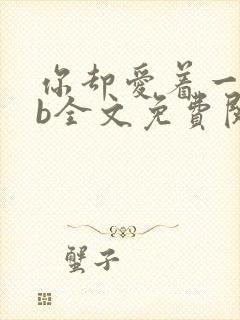 你却爱着一
b全文免費閱
蟹子